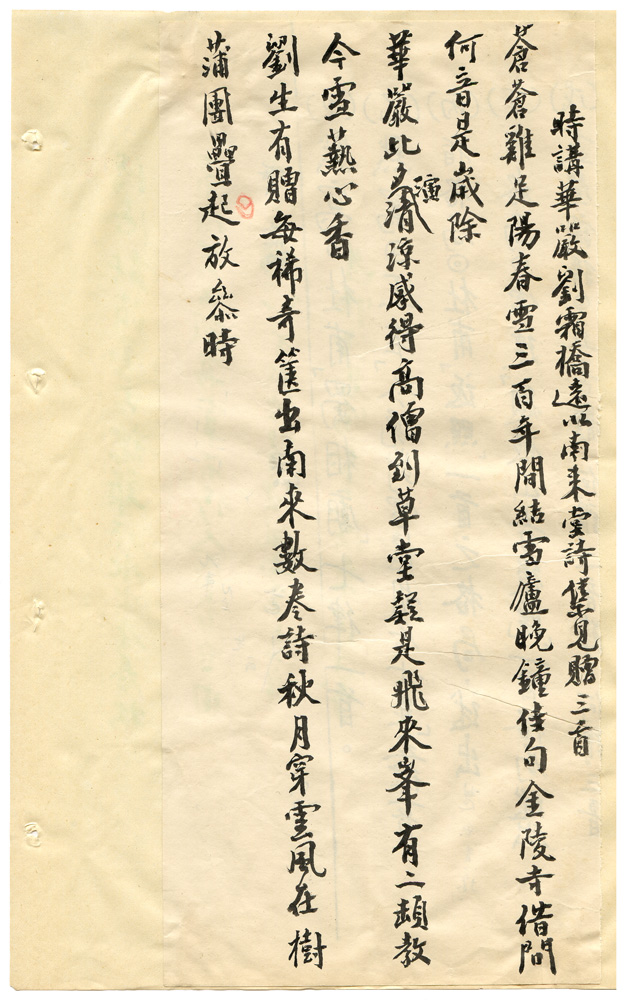 時講華嚴劉霜橋遠以南来堂詩集見贈三首
蒼蒼雞足陽春雪三百年間結雪廬晚鐘佳句金陵寺借問
何音是歲除
華嚴此夕演清涼感得高僧到草堂疑是飛來峯有二頓教
今雪爇心香
劉生有贈每稀奇篋出南來數卷詩秋月穿雲風在樹
蒲團疊起放參時